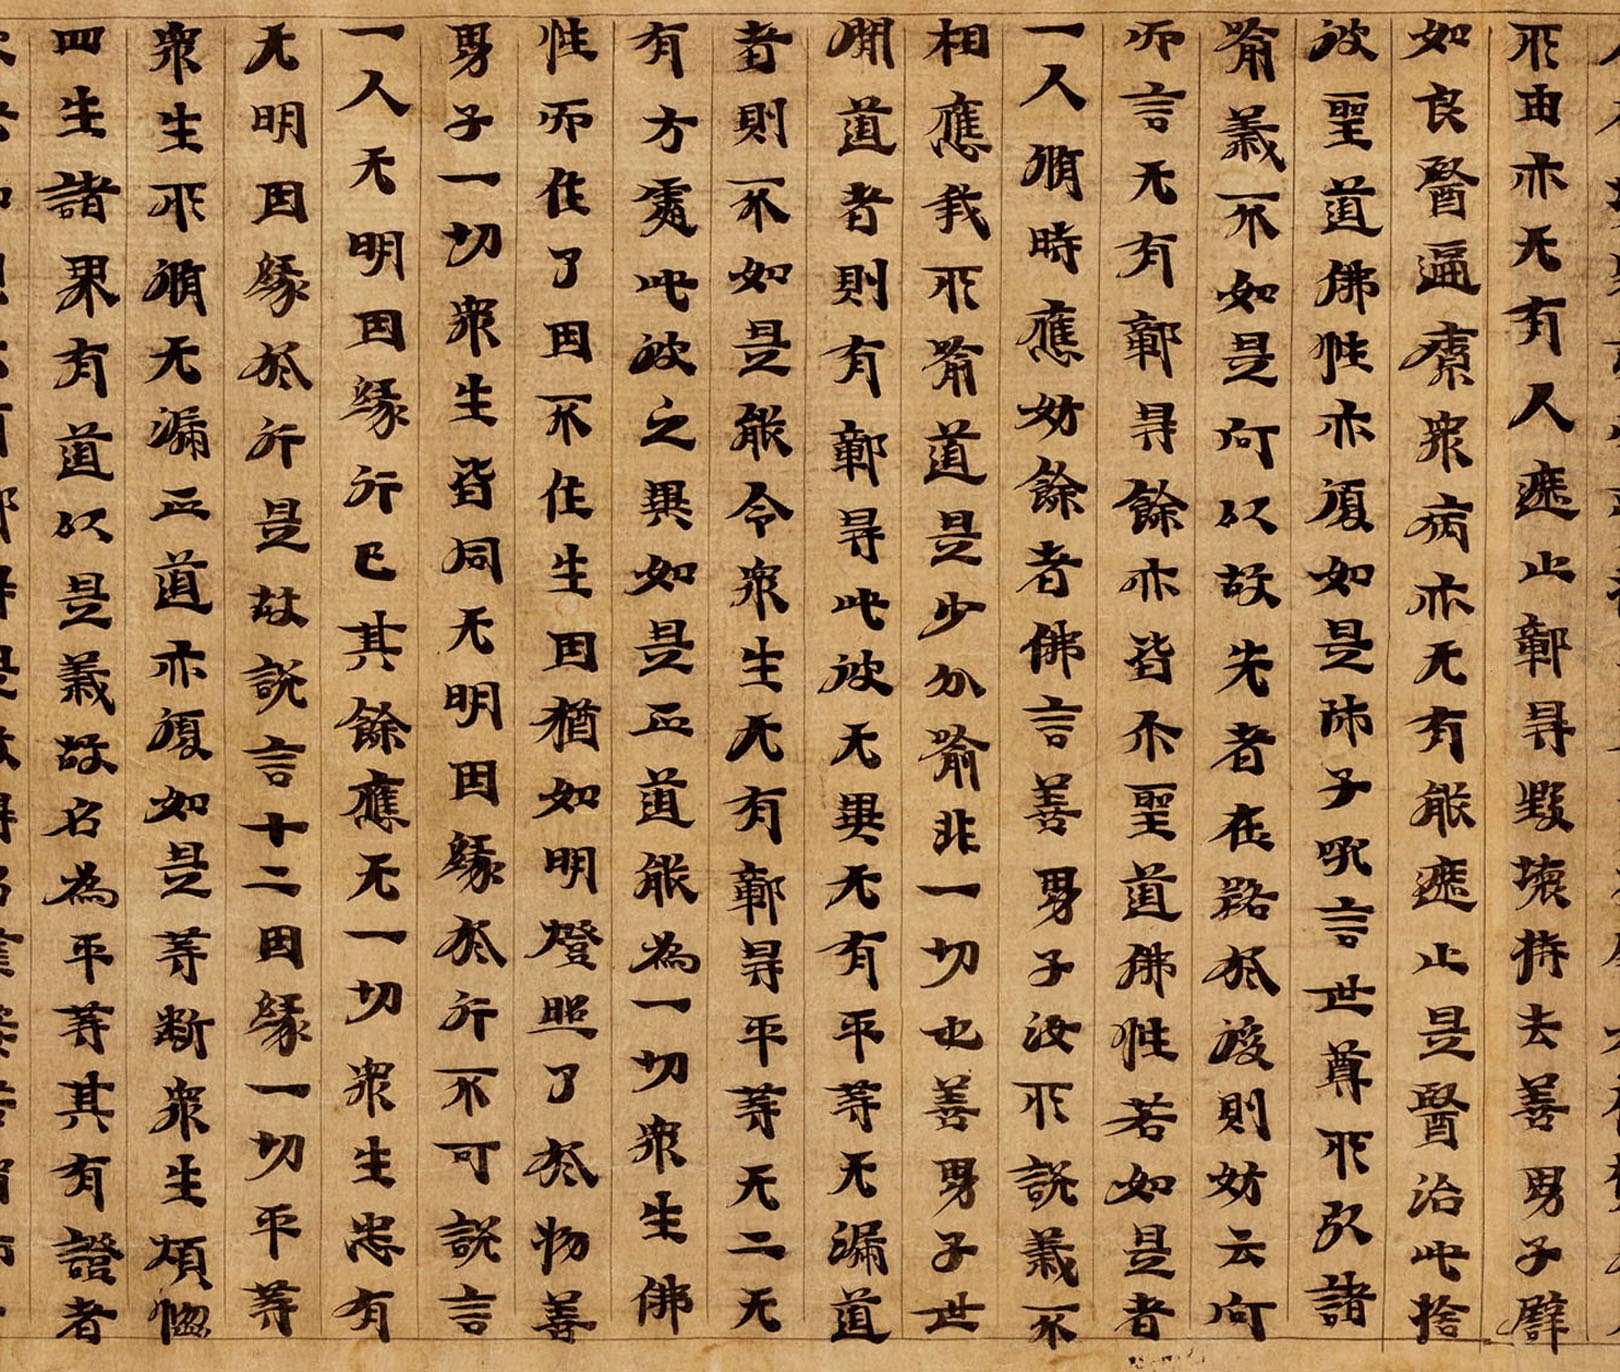 所由亦无有人遮止鄣㝵毀壞持去善男子譬
如良醫遍療眾病亦无有能遮止是醫治此捨
彼聖道佛性亦復如是師子吼言世尊所引諸
喻義不如是何以故先者在路於後則妨云何
而言无有鄣㝵餘亦皆尒聖道佛性若如是者
一人脩時應妨餘者佛言善男子汝所說義不
相應我所喻道是少分喻非一切也善男子世
間道者則有鄣㝵此彼无異无有平等无漏道
者則不如是能令眾生无有鄣㝵平等无二无
有方處此彼之異如是正道能為一切眾生佛
性而住了因不住生因猶如明燈照了於物善
男子一切眾生皆同无明因緣於行不可說言
一人无明因緣行已其餘應无一切眾生悉有
无明因緣於行是故說言十二因緣一切平等
眾生所脩无漏正道亦復如是等斷眾生煩惱
四生諸果有道以是義故名為平等其有證者